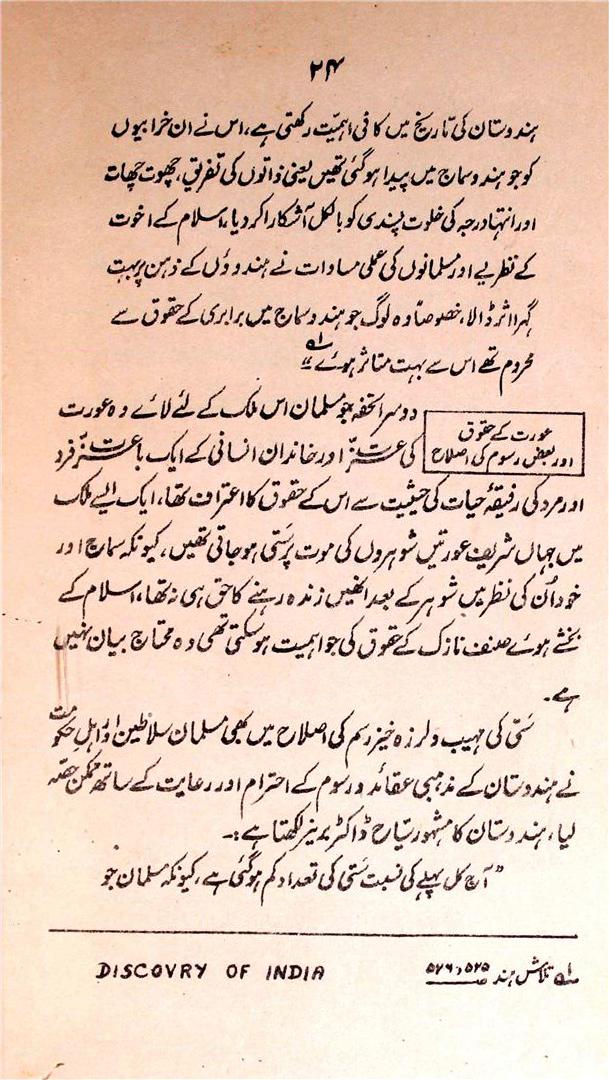 ۲۴
ہندوستان کی تاریخ میں کافی اہمیّت رکھتی ہے، اس نے ان خرابیوں
کو جو ہندو سماج میں پیدا ہو گئی تھیں یعنی ذاتوں کی تفریق، چھوت چھات
اور انتہا درجہ کی خلوت پسندی کو بالکل آشکارا کر دیا، اسلام کے اخوت
کے نظریے اور مسلمانوں کی عملی مساوات نے ہندوؤں کے ذہن پر بہت
گہرا اثر ڈالا، خصوصاً وہ لوگ جو ہندو سماج میں برابری کے حقوق سے
محروم تھے اس سے بہت متاثر ہوئے"۱؎
عورت کے حقوق
اور بعض رسوم کی اصلاح
دوسرا تحفہ جو مسلمان اس ملک کے لئے لائے وہ عورت
کی عزّت اور خاندان انسانی کے ایک باعزّت فرد
اور مرد کی رفیقۂ حیات کی حیثیت سے اس کے حقوق کا اعتراف تھا، ایک ایسے ملک
میں جہاں شریف عورتیں شوہروں کی موت پر ستی ہو جاتی تھیں، کیونکہ سماج اور
خود اُن کی نظر میں شوہر کے بعد انھیں زندہ رہنے کا حق ہی نہ تھا، اسلام کے
بخشے ہوئے صنف نازک کے حقوق کی جو اہمیت ہو سکتی تھی وہ محتاج بیان نہیں
ہے۔
ستی کی مہیب و لرزہ خیز رسم کی اصلاح میں بھی مسلمان سلاطین اور اہلِ حکومت
نے ہندوستان کے مذہبی عقائد و رسوم کے احترام اور رعایت کے ساتھ ممکن حصّہ
لیا، ہندوستان کا مشہور سیّاح ڈاکٹر برنیر لکھتا ہے:۔
"آج کل پہلے کی نسبت ستی کی تعداد کم ہو گئی ہے، کیونکہ مسلمان جو
۱؎ تلاش ہند ص ۵۲۵، ۵۲۶ DISCOVRY OF INDIA